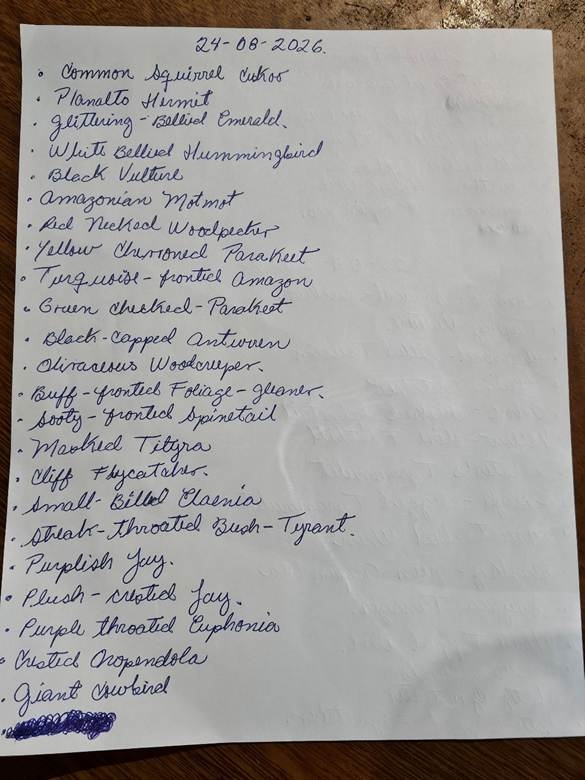 24-08-2026.
• Common Squirrel Cukoo
• Planalto Hermit
• Glittering-Bellied Emerald.
• White Bellied Hummingbird
• Black Vulture
• Amazonian Motmot
• Red Necked Woodpecker
• Yellow Chevroned Parakeet
• Turquoise-fronted Amazon
• Green cheeked-Parakeet
• Black-capped Antwren
• Olivaceous Woodcreeper.
• Buff-fronted Foliage-gleaner.
• Sooty-fronted Spinetail
• Masked Tityra
• Cliff Flycatcher.
• Small-Billed Elaenia
• Streak-throated Bush-Tyrant.
• Purplish Jay.
• Plush-crested Jay.
• Purple throated Euphonia
• Crested Oropendola
• Giant Cowbird